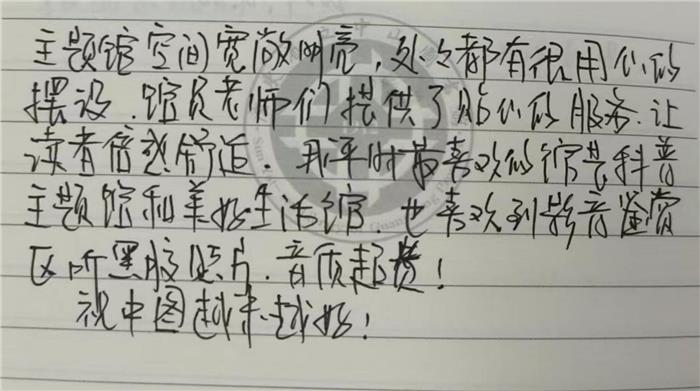 主题馆空间宽敞明亮，处处都有很用心的
摆设．馆员老师们提供了贴心的服务．让
读者倍感舒适．我平时最喜欢的馆是科普
主题馆和美好生活馆．也喜欢到影音鉴赏
区听黑胶唱片．音质超赞！
祝中图越来越好！